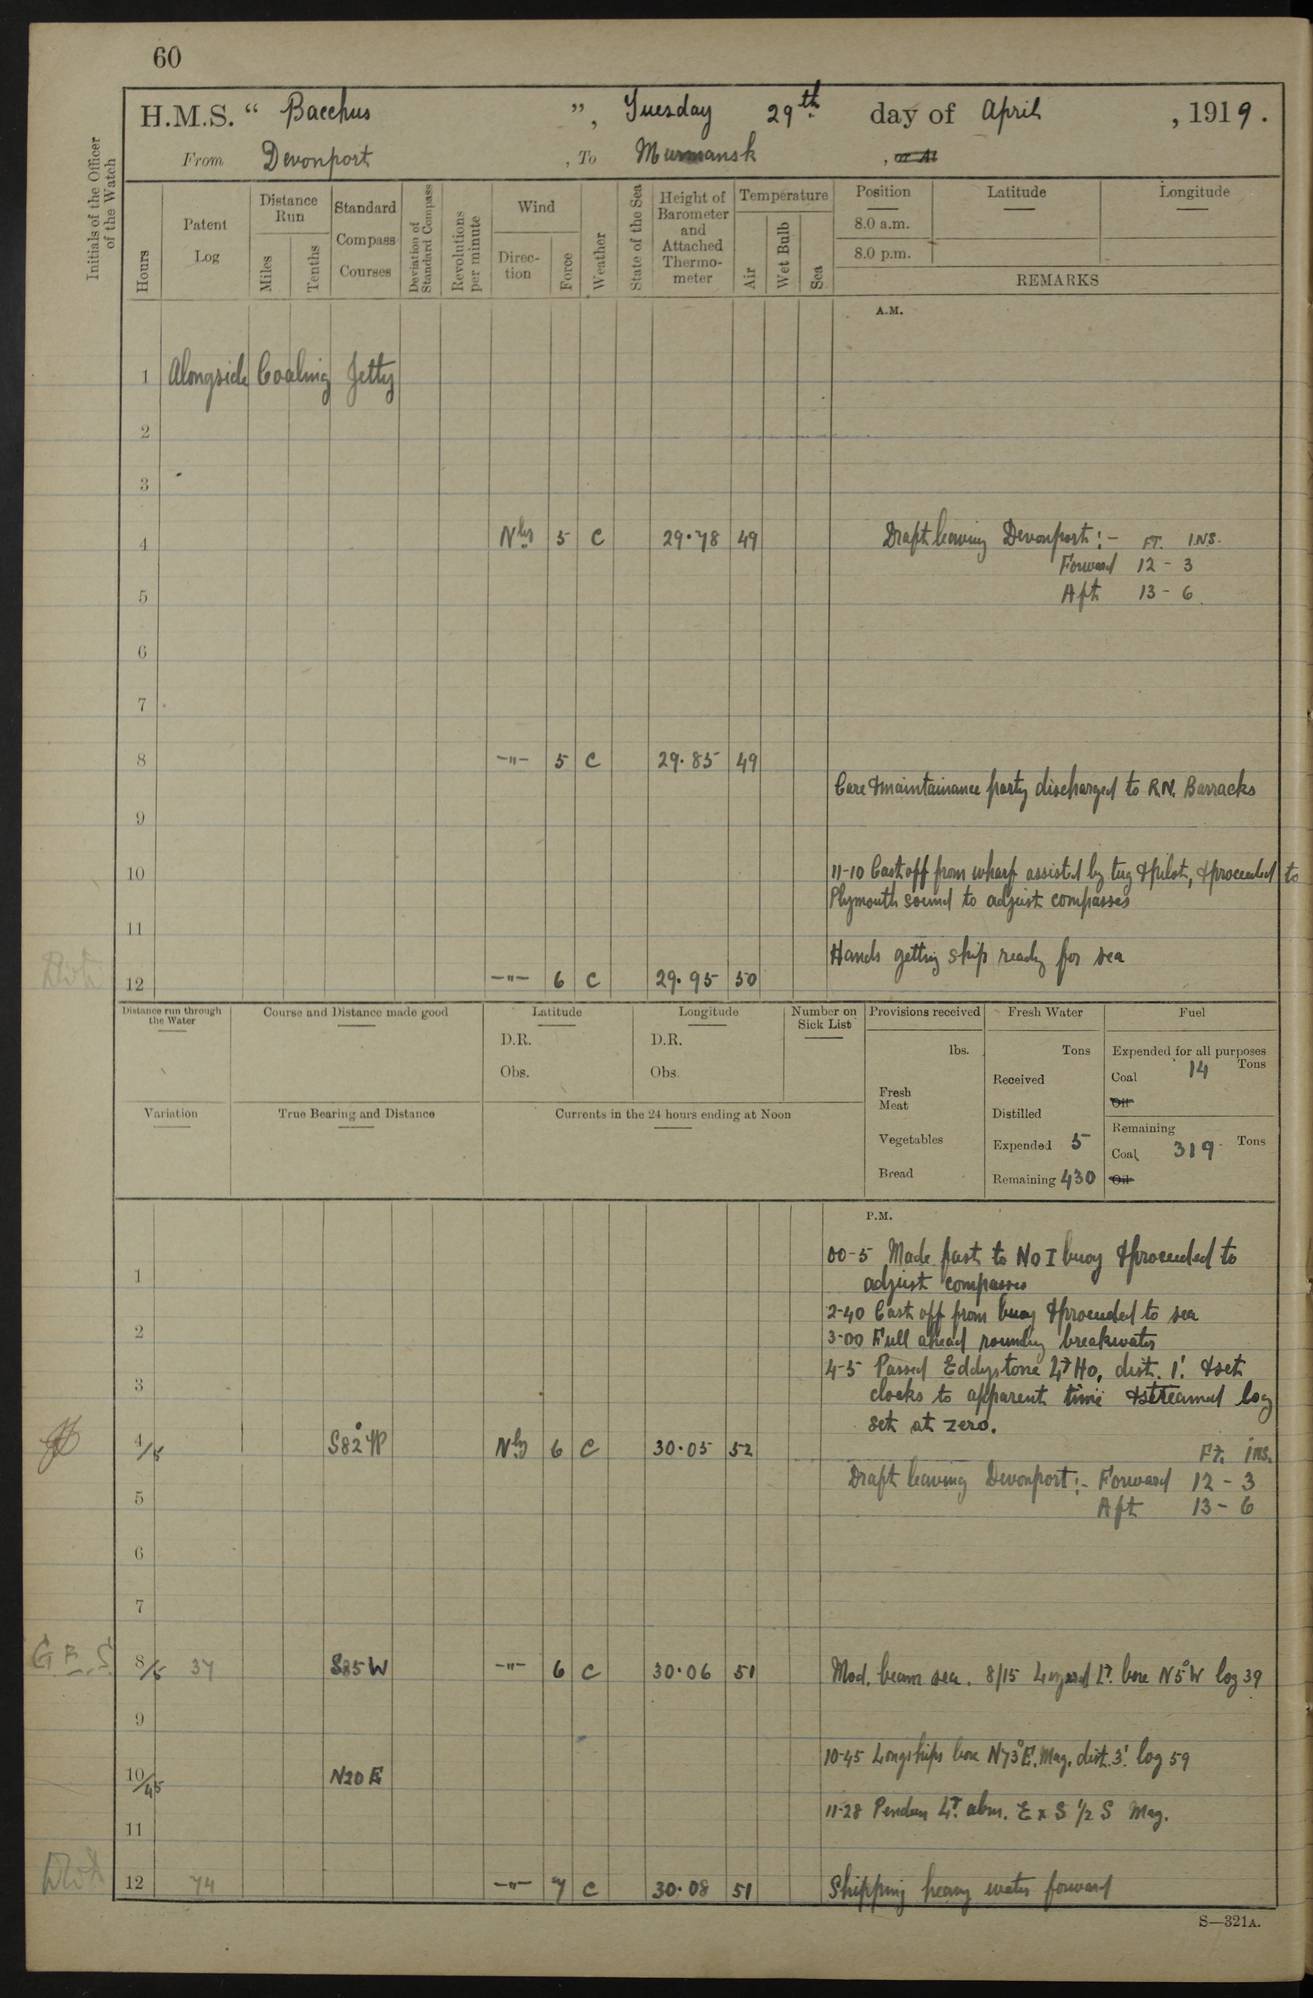 60
H.M.S. “ Bacchus ”, Tuesday 29th day of April , 1919.
From Devonport , To Murmansk , or At
Initials of the Officer of the Watch
Hours
Patent Log
Distance Run
Miles
Tenths
Standard Compass Courses
Deviation of Standard Compass
Revolutions per minute
Wind
Direction
Force
Weather
State of the Sea
Height of Barometer and Attached Thermometer
Temperature
Air
Wet Bulb
Sea
Position
Latitude
Longitude
8.0 a.m.
8.0 p.m.
REMARKS
A.M.
1 Alongside Coaling Jetty
2
3
4 Nly 5 C 29.78 49 Draft leaving Devonport :- FT. INS.
Forward 12 - 3
5 Aft 13 - 6
6
7
8 -"- 5 C 29.85 49
Care & maintainance party discharged to R.N. Barracks
9
10 11-10 Cast off from wharf assisted by tug & pilot, & proceeded to
Plymouth sound to adjust compasses
11
Hands getting ship ready for sea
12 -"- 6 C 29.95 50
Distance run through the Water
Course and Distance made good
Latitude
D.R.
Obs.
Longitude
D.R.
Obs.
Number on Sick List
Provisions received
lbs.
Fresh Meat
Vegetables
Bread
Fresh Water
Tons
Received
Distilled
Expended 5
Remaining 430
Fuel
Expended for all purposes
Coal 14 Tons
Oil
Remaining
Coal 319 Tons
Oil
Variation
True Bearing and Distance
Currents in the 24 hours ending at Noon
P.M.
00-5 Made fast to No I buoy & proceeded to
1 adjust compasses
2-40 Cast off from buoy & proceeded to sea
2 3-00 Full ahead rounding breakwater
4-5 Passed Eddystone Lt Ho, dist. 1'. & set
3 clocks to apparent time & streamed log
set at zero.
4/5 S82°W Nly 6 C 30.05 52 Ft. ins.
Draft leaving Devonport :- Forward 12 - 3
5 Aft 13 - 6
6
7
G.B.S. 8/5 37 S85W -"- 6 C 30.06 51 Mod. beam sea. 8/15 Lizard Lt. bore N5°W log 39
9
10-45 Longships bore N73°E. Mag. dist. 3'. log 59
10/45 N20E
11-28 Pendeen Lt. abm. E x S 1/2 S Mag.
11
12 74 -"- 7 C 30.08 51 Shipping heavy water forward
S—321A.